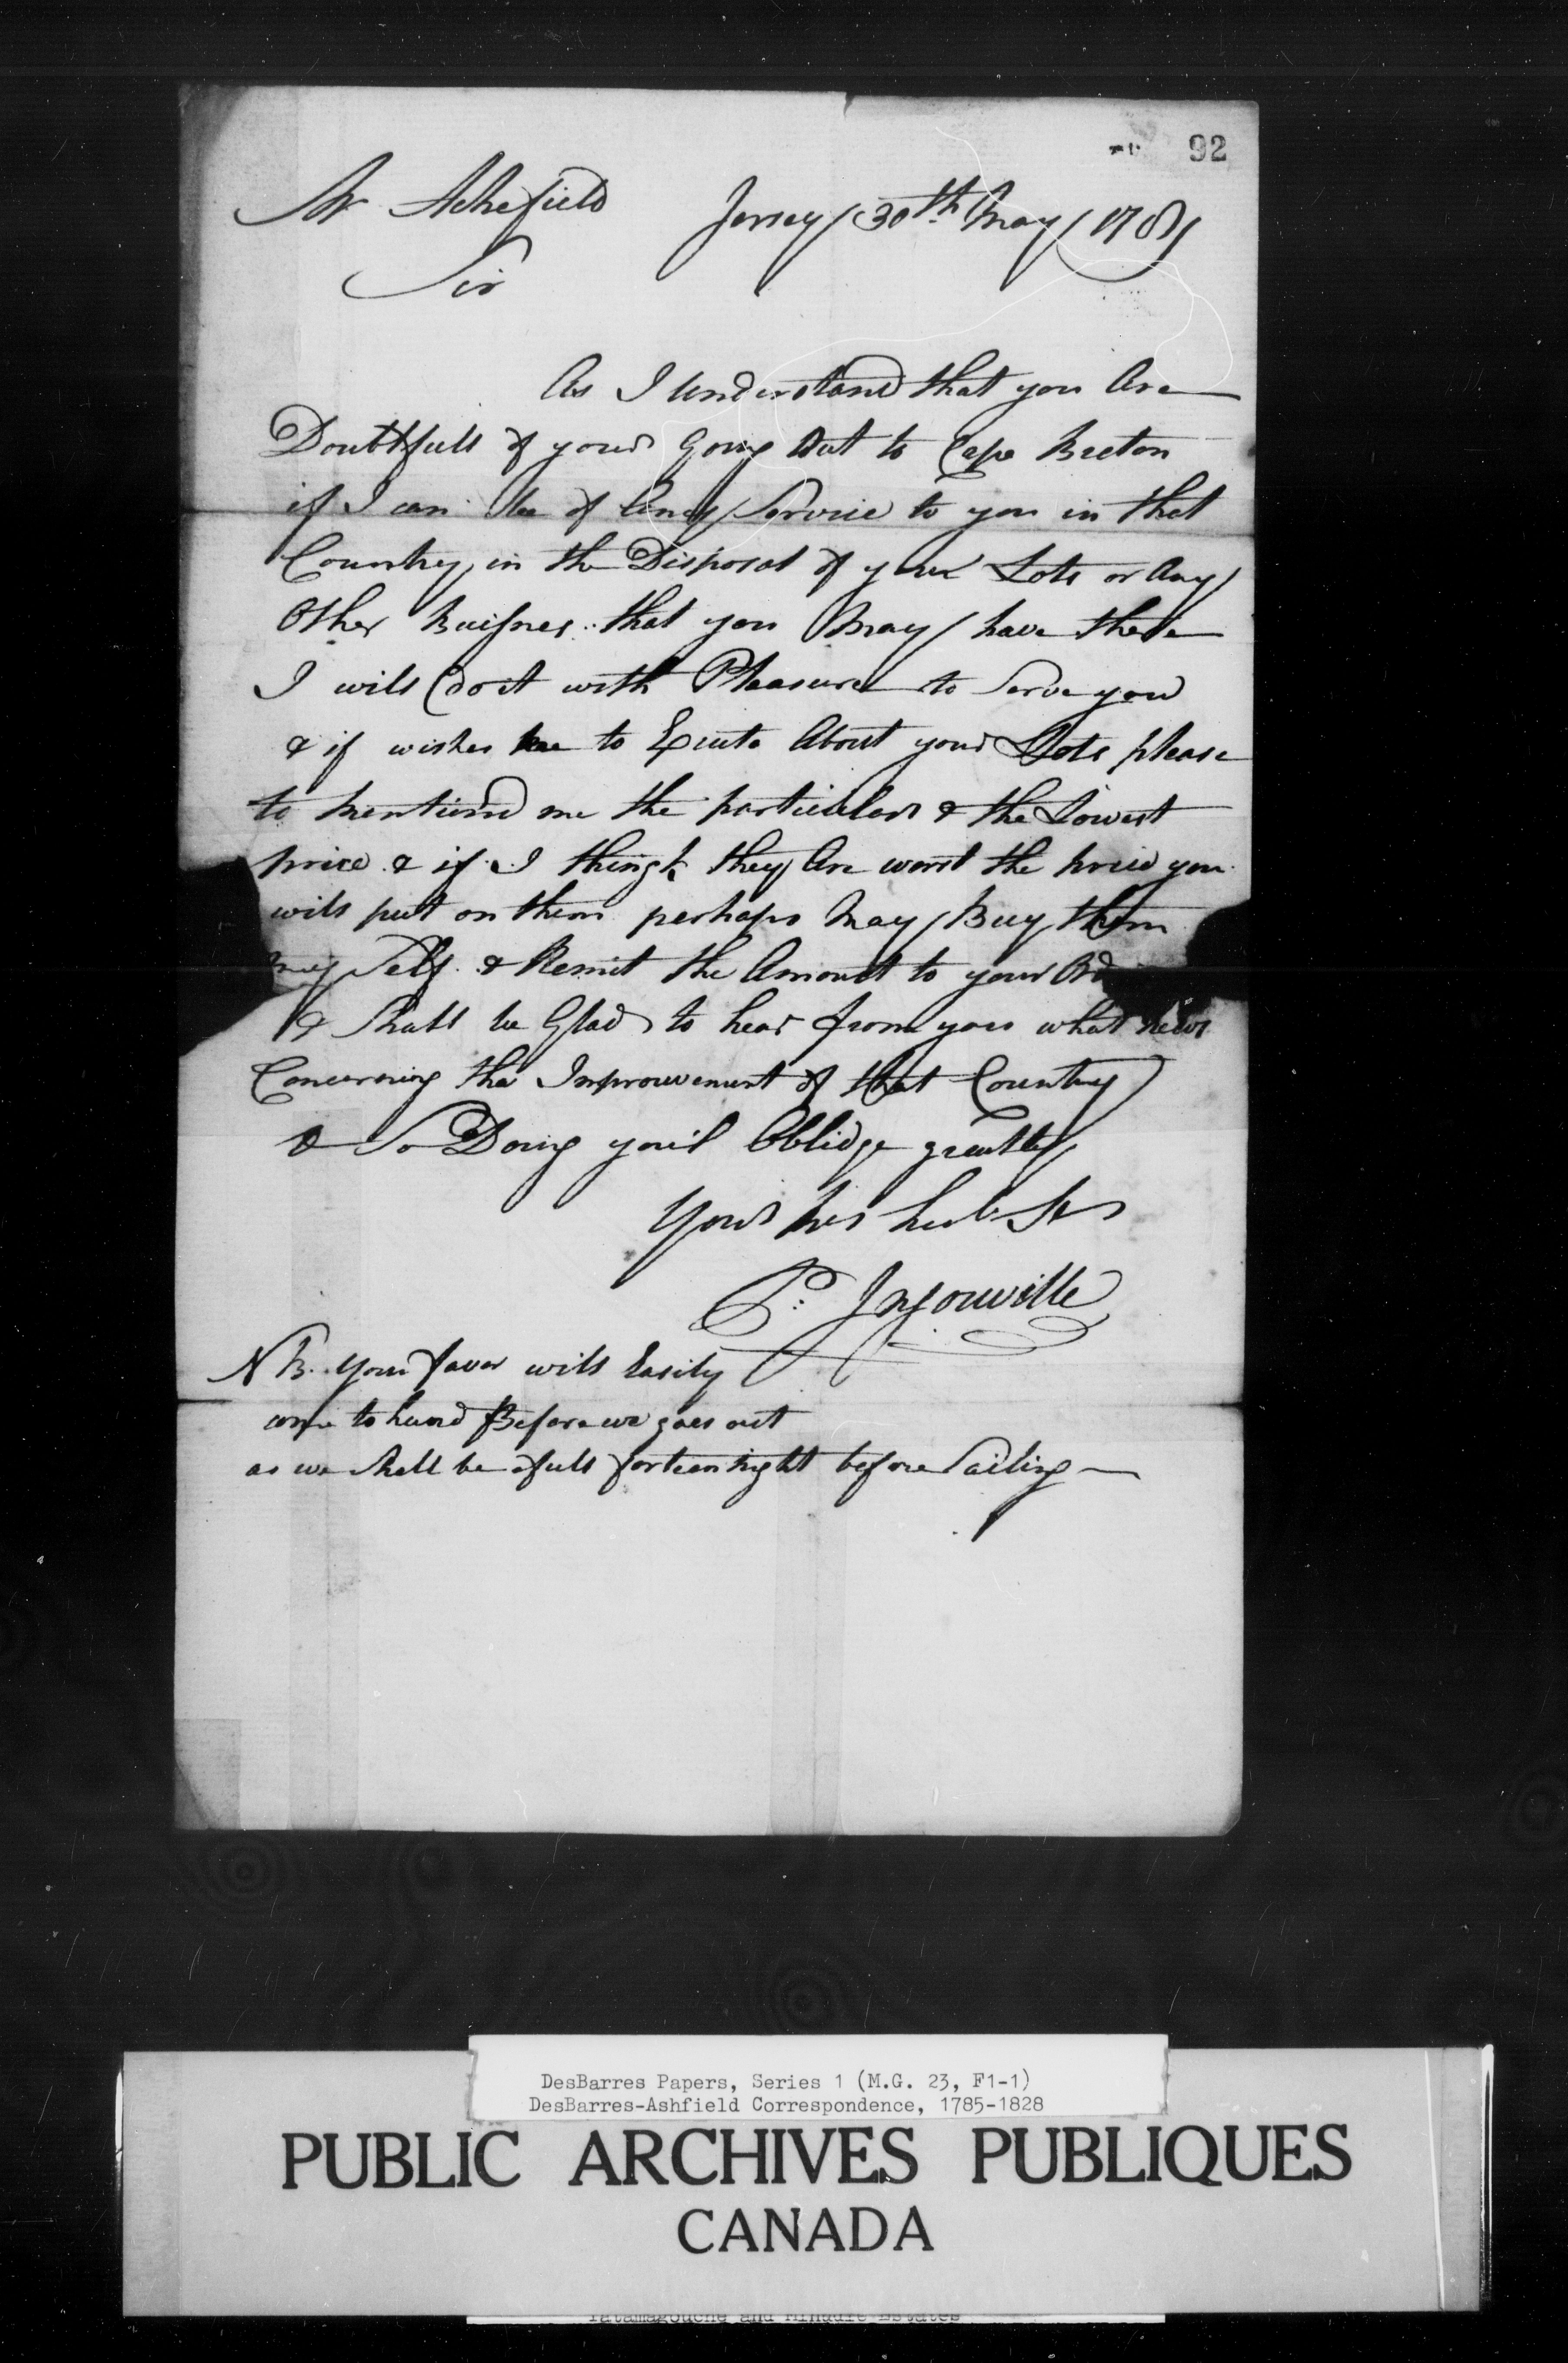 92
Mr Achefield Jersey 30th May 178
Sir
As I Understand that you Are
Doubtfull of your Going Out to Cape Breton
if I can be of Any Service to you in that
Country, in the Disposal of your Lots or Any
Other Buisnes that you May have there
I will do it with Pleasure to Serve you
& if wishes me to Excute About your Lots please
to mention'd me the particulars & the Lowest
price & if I thingk they Are worst the price you
will put on them perhaps May Buy them
my Self & Remit the Amount to your Ord
& Shall be Glad to hear from you what News
Concerning the Improuvement of that Country
& So Doing you'l Obblidge greattly
Your hes hubl St
P: Ingouville
NB. Your favor will Easily
come to hand Before we goes out
as we Shall be a full forteen night before Sailing
DesBarres Papers, Series 1 (M.G. 23, F1-1)
DesBarres-Ashfield Correspondence, 1785-1828
PUBLIC ARCHIVES PUBLIQUES
CANADA
Tatamagouche and Minudie Estates